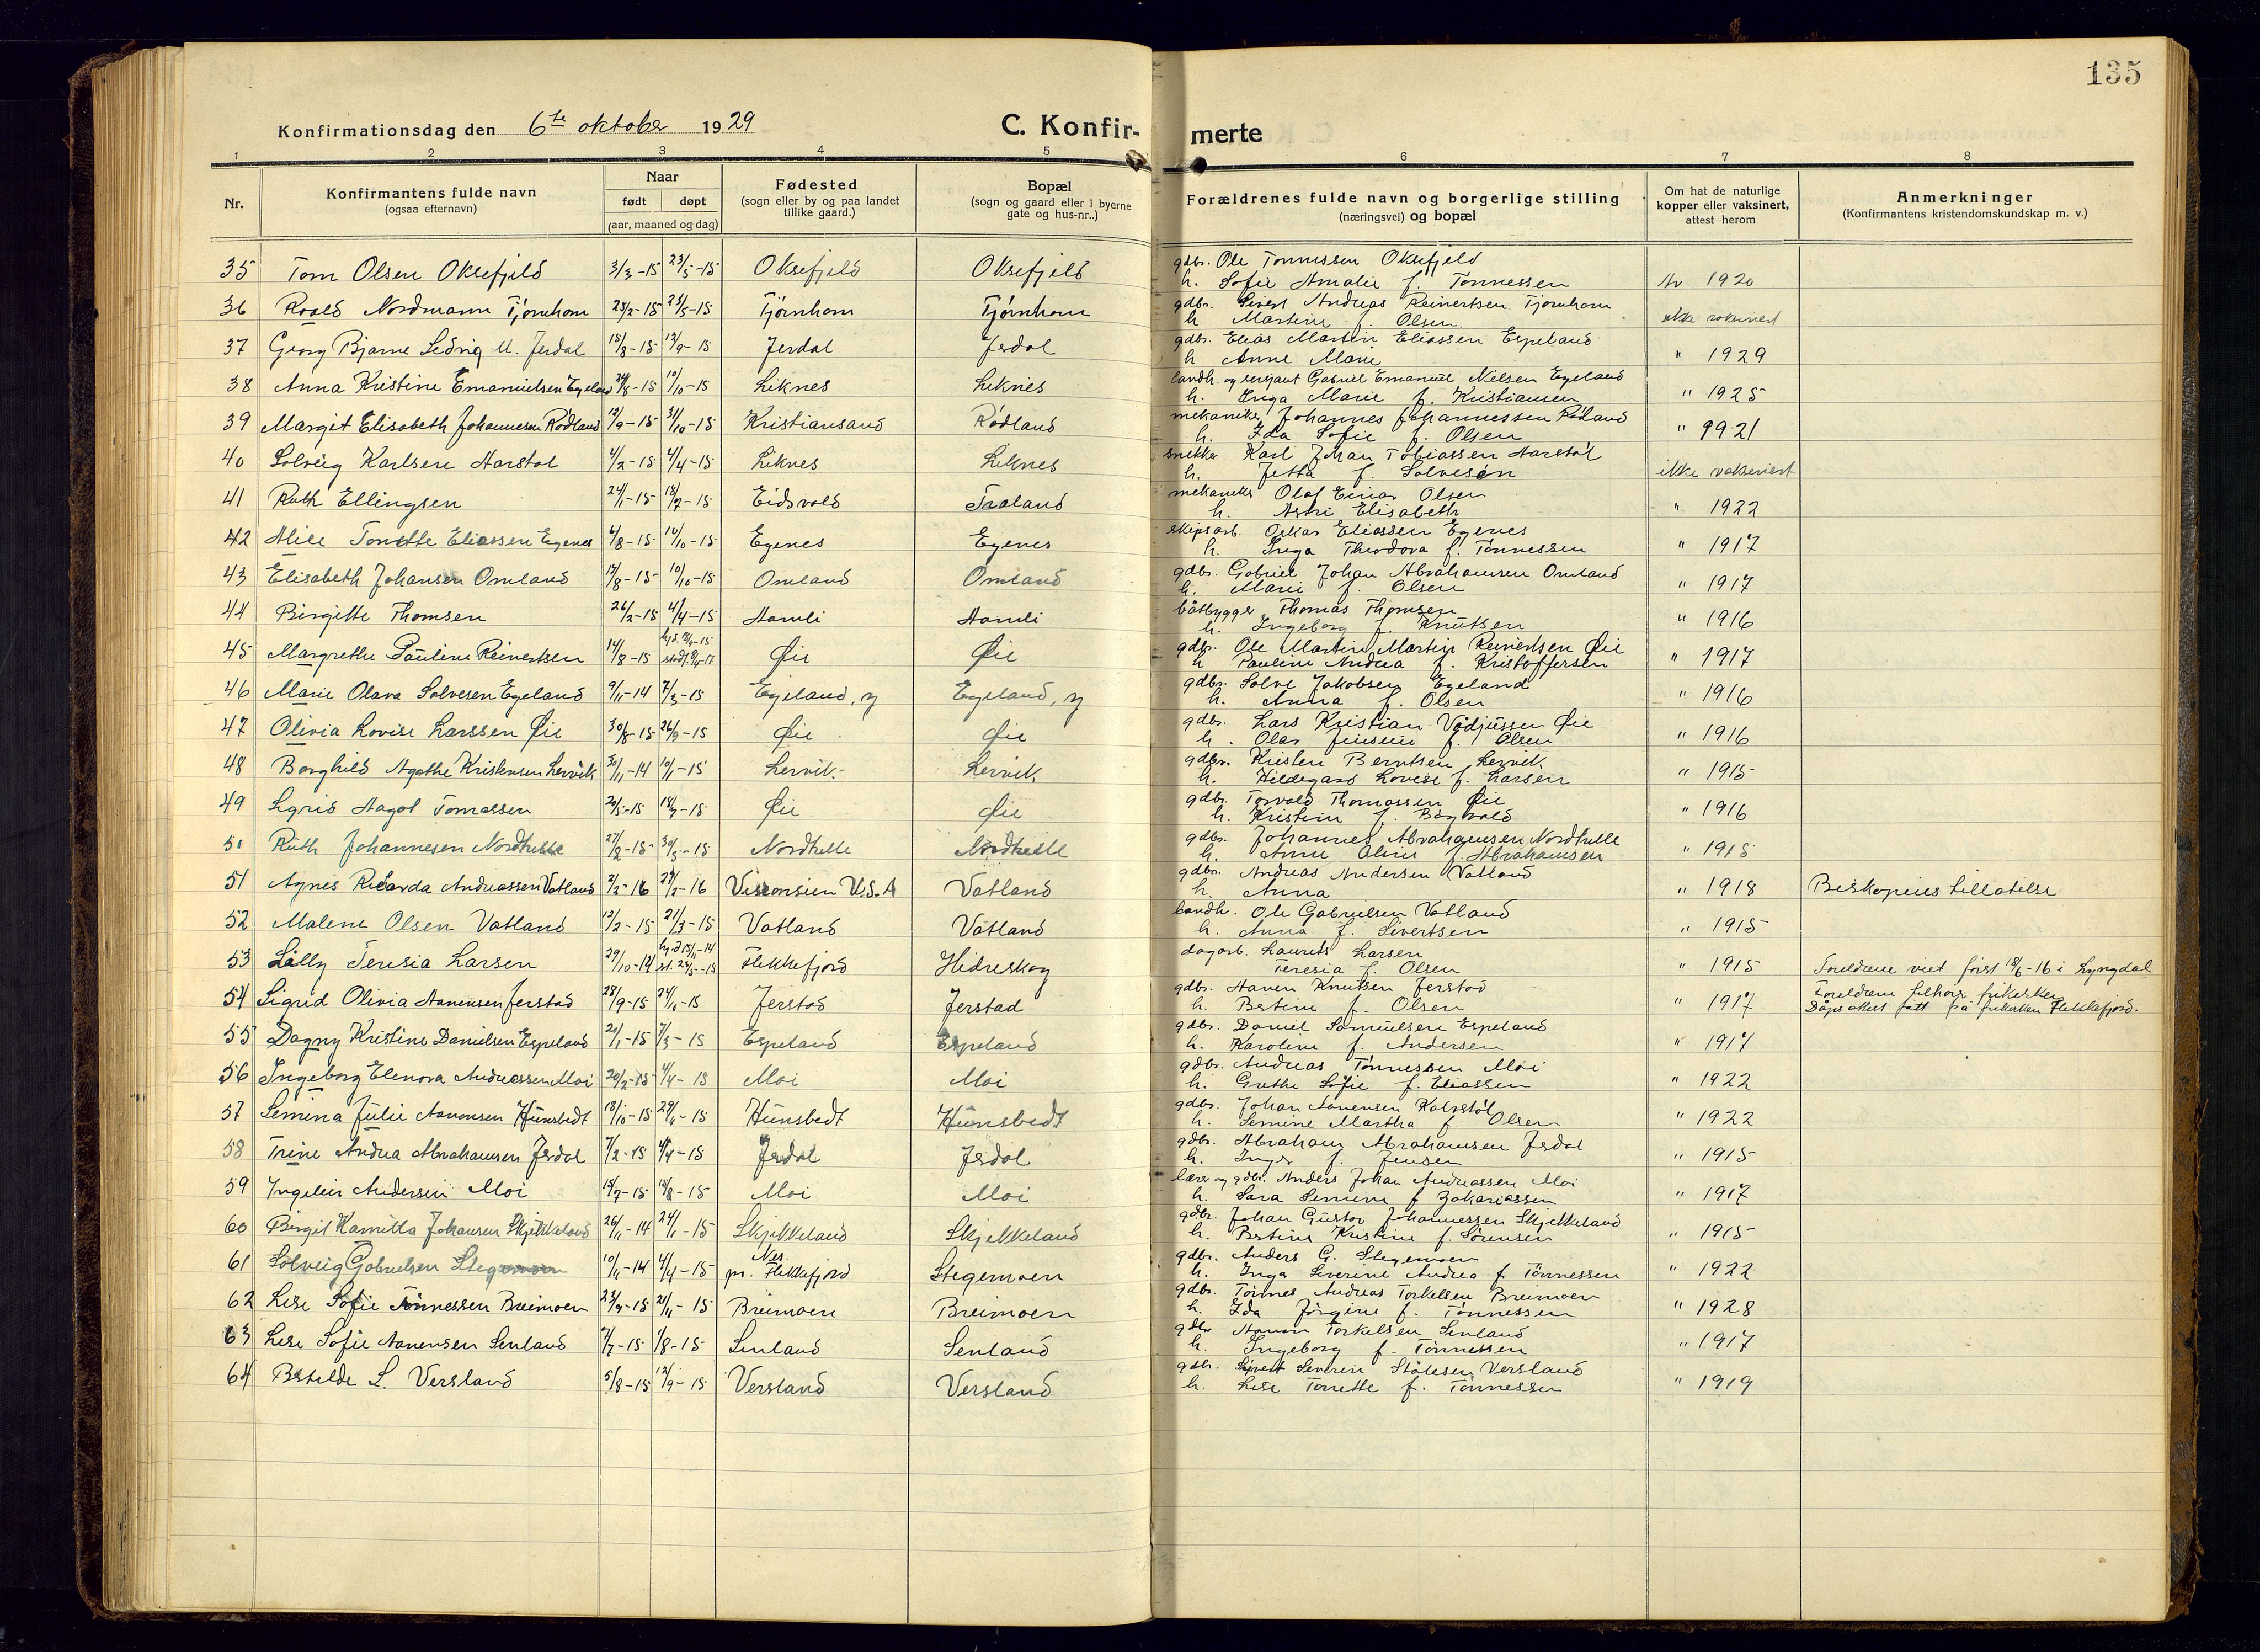 135
Konfirmationsdag den 6te oktober 1929 C. Konfir- merte
1 2 3 4 5 6 7 8
Nr. Konfirmantens fulde navn (ogsaa efternavn) Naar født døpt (aar, maaned og dag) Fødested (sogn eller by og paa landet tillike gaard.) Bopæl (sogn og gaard eller i byerne gate og hus-nr..) Forældrenes fulde navn og borgerlige stilling (næringsvei) og bopæl Om hat de naturlige kopper eller vaksinert, attest herom Anmerkninger (Konfirmantens kristendomskundskap m. v.)
35 Tom Olsen Oksefjeld 3/3-15 23/5-15 Oksefjeld Oksefjeld gdbr. Ole Tønnessen Oksefjeld
h. Sofie Amalie f. Tønnessen 1920
36 Roald Nordmann Tjørnhom 25/2-15 23/5-15 Tjørnhom Tjørnhom gdbr. Sivert Andreas Reinertsen Tjørnhom
h Martine f. Olsen ikke vaksinert
37 Georg Bjarne Ledvig M. Jerdal 15/8-15 12/9-15 Jerdal Jerdal gdbr. Elias Martin Eliassen Espeland
h Anne Marie " 1929
38 Anna Kristine Emanuelsen Egeland 24/8-15 10/10-15 Liknes Liknes landh. og serjant Gabriel Emanuel Nielsen Egeland
h. Inga Marie f. Kristiansen " 1925
39 Margit Elisabeth Johannesen Rødland 12/9-15 31/10-15 Kristiansand Rødland mekaniker Johannes Johannessen Rødland
h. Ida Sofie f. Olsen " 1921
40 Solveig Karlsen Aarstøl 4/2-15 4/4-15 Liknes Liknes snikker Karl Johan Tobiassen Aarstøl
h. Jetta f. Solvesen ikke vaksinert
41 Ruth Ellingsen 24/1-15 18/7-15 Eidsvold Træland mekaniker Olaf Einar Olsen
h. Astri Elisabeth " 1922
42 Alice Tonette Eliassen Egenes 6/8-15 10/10-15 Egenes Egenes skipsarb. Oskar Eliassen Egenes
h. Inga Theodora f. Tønnessen " 1917
43 Elisabeth Johansen Omland 12/8-15 10/10-15 Omland Omland gdbr. Gabriel Johan Abrahamsen Omland
h. Marie f. Olsen " 1917
44 Birgitte Thomsen 26/2-15 4/4-15 Aamli Aamli båtbygger Thomas Thomsen
h. Ingeborg f. Knutsen " 1916
45 Margrethe Pauline Reinertsen 14/8-15 Øie Øie gdbr. Ole Martin Martin Reinertsen Øie
h Pauline Andrea f. Kristoffersen " 1917
46 Marie Olava Solvesen Egeland 9/11-14 7/3-15 Egeland, y Egeland, y gdbr. Solve Jakobsen Egeland
h. Anna f. Olsen " 1916
47 Olivia Lovise Larssen Øie 30/8-15 26/9-15 Øie Øie gdbr. Lars Kristian Vådjussen Øie
h. Olar Jensine f. Olsen " 1916
48 Borghild Agathe Kristensen Lervik 30/11-14 10/1-15 Lervik Lervik gdbr. Kristen Berntsen Lervik
h. Hildegard Lovise f. Larsen " 1915
49 Sgrid Aagot Tomassen 20/5-15 18/7-15 Øie Øie gdbr. Torvald Thomassen Øie
h. Kristine f. Bøgvald " 1916
50 Ruth Johannesen Nordhelle 27/2-15 30/5-15 Nordhelle Nordhelle gdbr. Johannes Abrahamsen Nordhelle
h. Anne Oline f. Abrahamsen " 1915
51 Agnes Ricarda Andreassen Vatland 2/2-16 27/2-16 Visconsien U.S.A Vatland gdbr. Andreas Andersen Vatland
h. Anna " 1918 Biskopens tillatelse
52 Malene Olsen Vatland 12/2-15 21/3-15 Vatland Vatland landh. Ole Gabrielsen Vatland
h. Anna f. Sivertsen " 1915
53 Lilly Teresia Larsen 29/10-14 hj.d 15/11-14 st. 23/5-15 Flekkefjord Hidreskog dagarb. Laurits Larsen
Teresia f. Olsen " 1915 Foreldrene viet først 18/6-16 i Lyngdal
54 Sigrid Olivia Aanensen Jerstad 28/9-15 21/11-15 Jerstad Jerstad gdbr. Aanen Knutsen Jerstad
h. Bertine f. Olsen " 1917 Foreldrene tilhører frikirken
Dåpsattest fått fra frikirken Flekkefjord.
55 Dagny Kristine Danielsen Espeland 21/1-15 7/3-15 Espeland Espeland gdbr. Daniel Samuelsen Espeland
h. Karoline f. Andersen " 1917
56 Ingeborg Elenora Andreassen Moi 20/2-15 4/4-15 Moi Moi gdbr. Andreas Tønnessen Moi
h. Grethe Sofie f. Eliassen " 1922
57 Semina Julie Aanensen Hunsbedt 18/10-15 Hunsbedt Hunsbedt gdbr. Johan Aanensen Kalvstøl
h. Semine Martha f. Olsen " 1922
58 Trine Andrea Abrahamsen Jerdal 7/2-15 4/4-15 Jerdal Jerdal gdbr. Abraham Abrahamsen Jerdal
h. Inger f. Jensen " 1915
59 Ingeleiv Andersen Moi 15/7-15 15/8-15 Moi Moi lærer og gdbr. Anders Johan Andreassen Moi
h. Sara Semine f Zakariassen " 1917
60 Birgit Kamitta Johansen Skjekkeland 26/11-14 24/1-15 Skjekkeland Skjekkeland gdbr. Johan Gustav Johannessen Skjekkeland
h. Bertine Kristine f. Sørensen " 1915
61 Solveig Gabrielsen Stegemoen 10/11-14 4/4-15 Nes pr. Flekkefjord Stegemoen gdbr. Anders G. Stegemoen
h. Inga Severine Andrea f Tønnessen " 1922
62 Lise Sofie Tønnessen Breimoen 23/9-15 21/11-15 Breimoen Breimoen gdbr. Tønnes Andreas Torkelsen Breimoen
h. Ida Jørgine f. Tønnessen " 1928
63 Lise Sofie Aanensen Senland 7/7-15 1/8-15 Senland Senland gdbr Aanen Torkelsen Senland
h. Ingeborg f. Tønnessen " 1917
64 Betilde S. Versland 5/8-15 12/9-15 Versland Versland gdbr. Sivert Severin Stålesen Versland
h. Lise Tonette f. Tønnessen " 1919